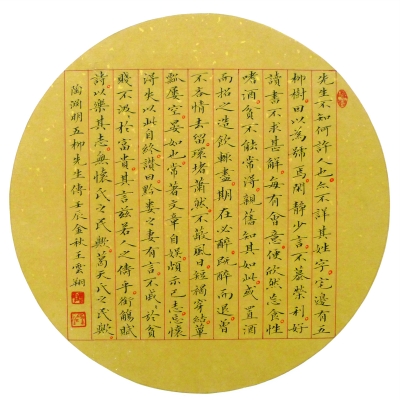 先生不知何许人也亦不详其姓字宅边有五
柳樹因以為號焉闲静少言不慕荣利好
讀書不求甚解每有會意便欣然忘食性
嗜酒貧不能常得親舊知其如此或置酒
而招之造飲輒盡期在必醉既醉而退曾
不吝情去留環堵蕭然不蔽風日短褐穿結簞
瓢屢空晏如也常著文章自娱頗示己志忘懷
得失以此自終讚曰黔婁之妻有言不戚戚於貧
賤不汲汲於富貴其言兹若人之儔乎衔觞賦
詩以樂其志無懷氏之民歟葛天氏之民歟
陶淵明五柳先生傳壬辰金秋王雲翔